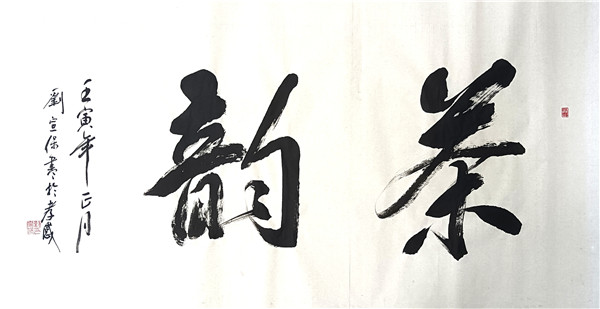 茶韵
壬寅年正月
劉宣保書於孝感